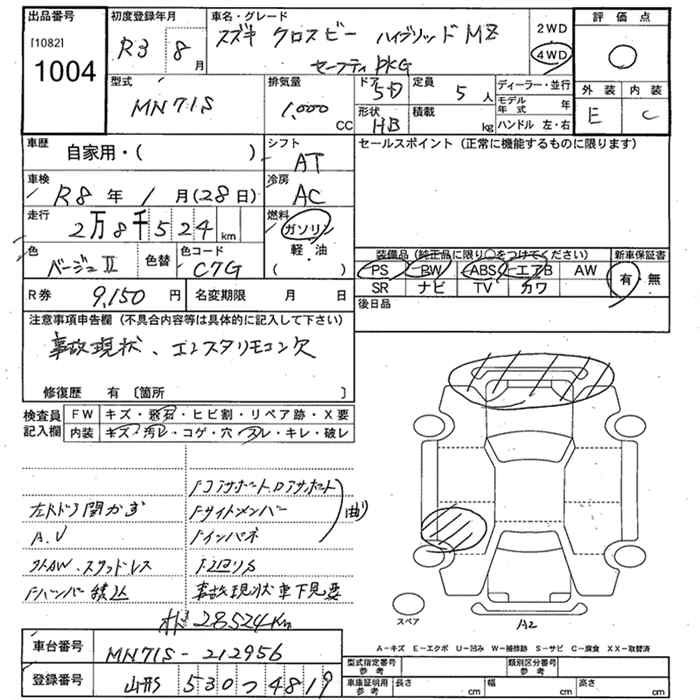 出品番号 初度登録年月 車名・グレード スズキ クロスビー ハイブリッド MZ 2WD 評価点
[1082] R3 8月 セーフティPKG 4WD
1004
型式 排気量 ドア 5D 定員 5人 ディーラー・並行 外装 内装
MN71S 1,000 CC 形状 HB 積載 kg モデル年式 年 E C
ハンドル 左・右
車歴 自家用・( ) シフト AT セールスポイント(正常に機能するものに限ります)
車検 R8年 1月(28日) 冷房 AC
走行 2万8千524km 燃料 ガソリン
軽・油
( )
色 ベージュII 色替 色コード C7G
装備品(純正品に限り○をつけてください) 新車保証書
PS PW ABS エアB AW 有・無
SR ナビ TV カワ
R券 9,150円 名変期限 月 日 後日品
注意事項申告欄(不具合内容等は具体的に記入して下さい)
事故現状、エンスタリモコン欠
修復歴 有〔箇所 〕
検査員記入欄 FW キズ・飛石・ヒビ割・リペア跡・X要
内装 キズ・汚レ・コゲ・穴・スレ・キレ・破レ
FコアサポートロアサポートF
左Rドア開かず Fサイドメンバー 曲
A.V Fインパネ
社外AW・スタッドレス
Fバンパー積込 事故現状車下見要
28524km
スペア A2
A−キズ E−エクボ U−凹み W−補修跡 S−サビ C−腐食 XX−取替済
車台番号 MN71S-212956
登録番号 山形 530 つ 4819
型式指定番号 参考 類別区分番号 参考
車庫証明用 参考 長さ cm 幅 cm 高さ cm